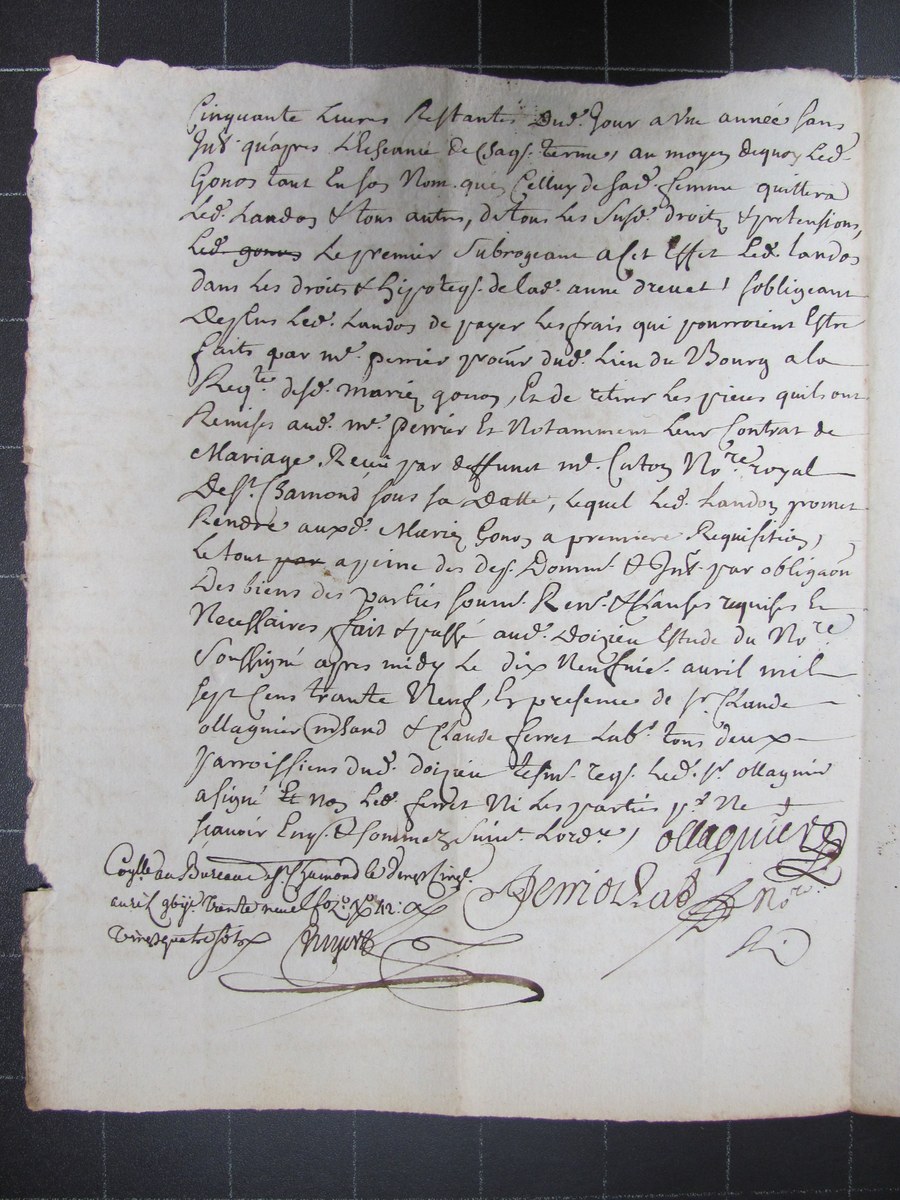 Cinquante Livres Restantes Dud. Jour a Vne année sans
Jnt. qu'apres L'Esceance de Chaqe. terme, au moyen dequoy Led.
Gonos tant En son Nom. quen Celluy de sad. femme quittera
Led. Landos & tous autres, de tous Les Susd. droits & pretensions,
Led. gonos Le premier Subrogeant a Cet Effet Led. landos
dans Les droits & hipoteqs. de lad. anne dreuet, sobligeant
Deplus Led. Landos de payer Les frais qui pourroient Estre
faits par me. perrier procur dud. Lieu du Bourg a la
Reqte. desd. mariez gonos, Et de retirer Les pieces quils ont
Remises aud. me. perrier Et Notamment Leur Contrat de
Mariage Receu par deffunct me. Royal
De St. Chamond sous sa Datte, Lequel Led. Landos promet
Rendre auxd. Mariez Gonos a premiere Requisition,
Le tout par a peine des desp. Domm. & Jnt. par obligaon
Des biens des parties soumn. Renn. & Clauses requises Et
Necessaires, fait & passé aud. Doizieu Estude du Nore.
Soussigné apres midy Le dix Neufvie. avril mil
sept Cens trante Neuf, En presence de sr. Claude
ollagnier & Claude ferret Labr. tous deux
Parroissiens dud. doizieu tesm. reqs. Led. sr. ollagnier
a signé Et Non Led. ferret Ni Les parties pr. Ne
sçavoir Enqs. & Sommez Suivt. Lordce.,
ollagnier
Nore
au Bureau de St Chamond le
avril trante neuf fo
vingt quatre sols